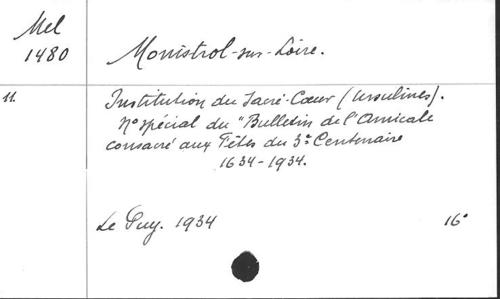 Mel
1480
Monistrol-sur-Loire.
11.
Institution du Sacré-Cœur (Ursulines).
N° spécial du "Bulletin de l'Amicale
consacré aux Fêtes du 3e Centenaire
1634-1934.
Le Puy. 1934
16°